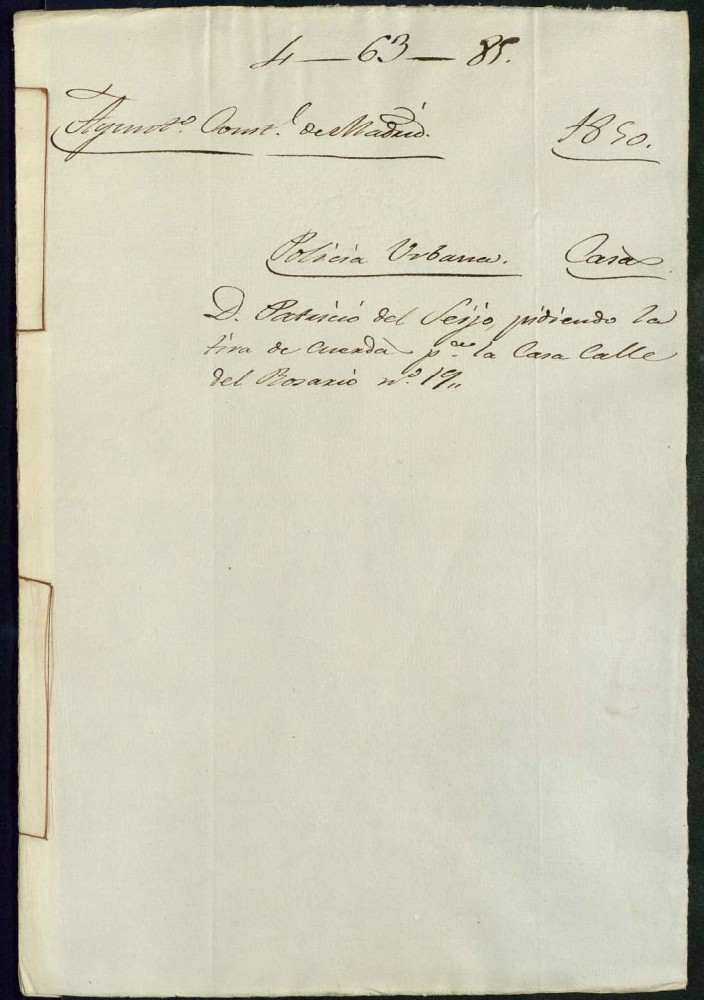 4 — 63 — 85.
Ayunto. Const.l de Madrid. 1850.
Policia Urbana. Casas
D. Patricio del Seijo, pidiendo la
tira de cuerda p.a la Casa Calle
del Rosario n.o 19,,